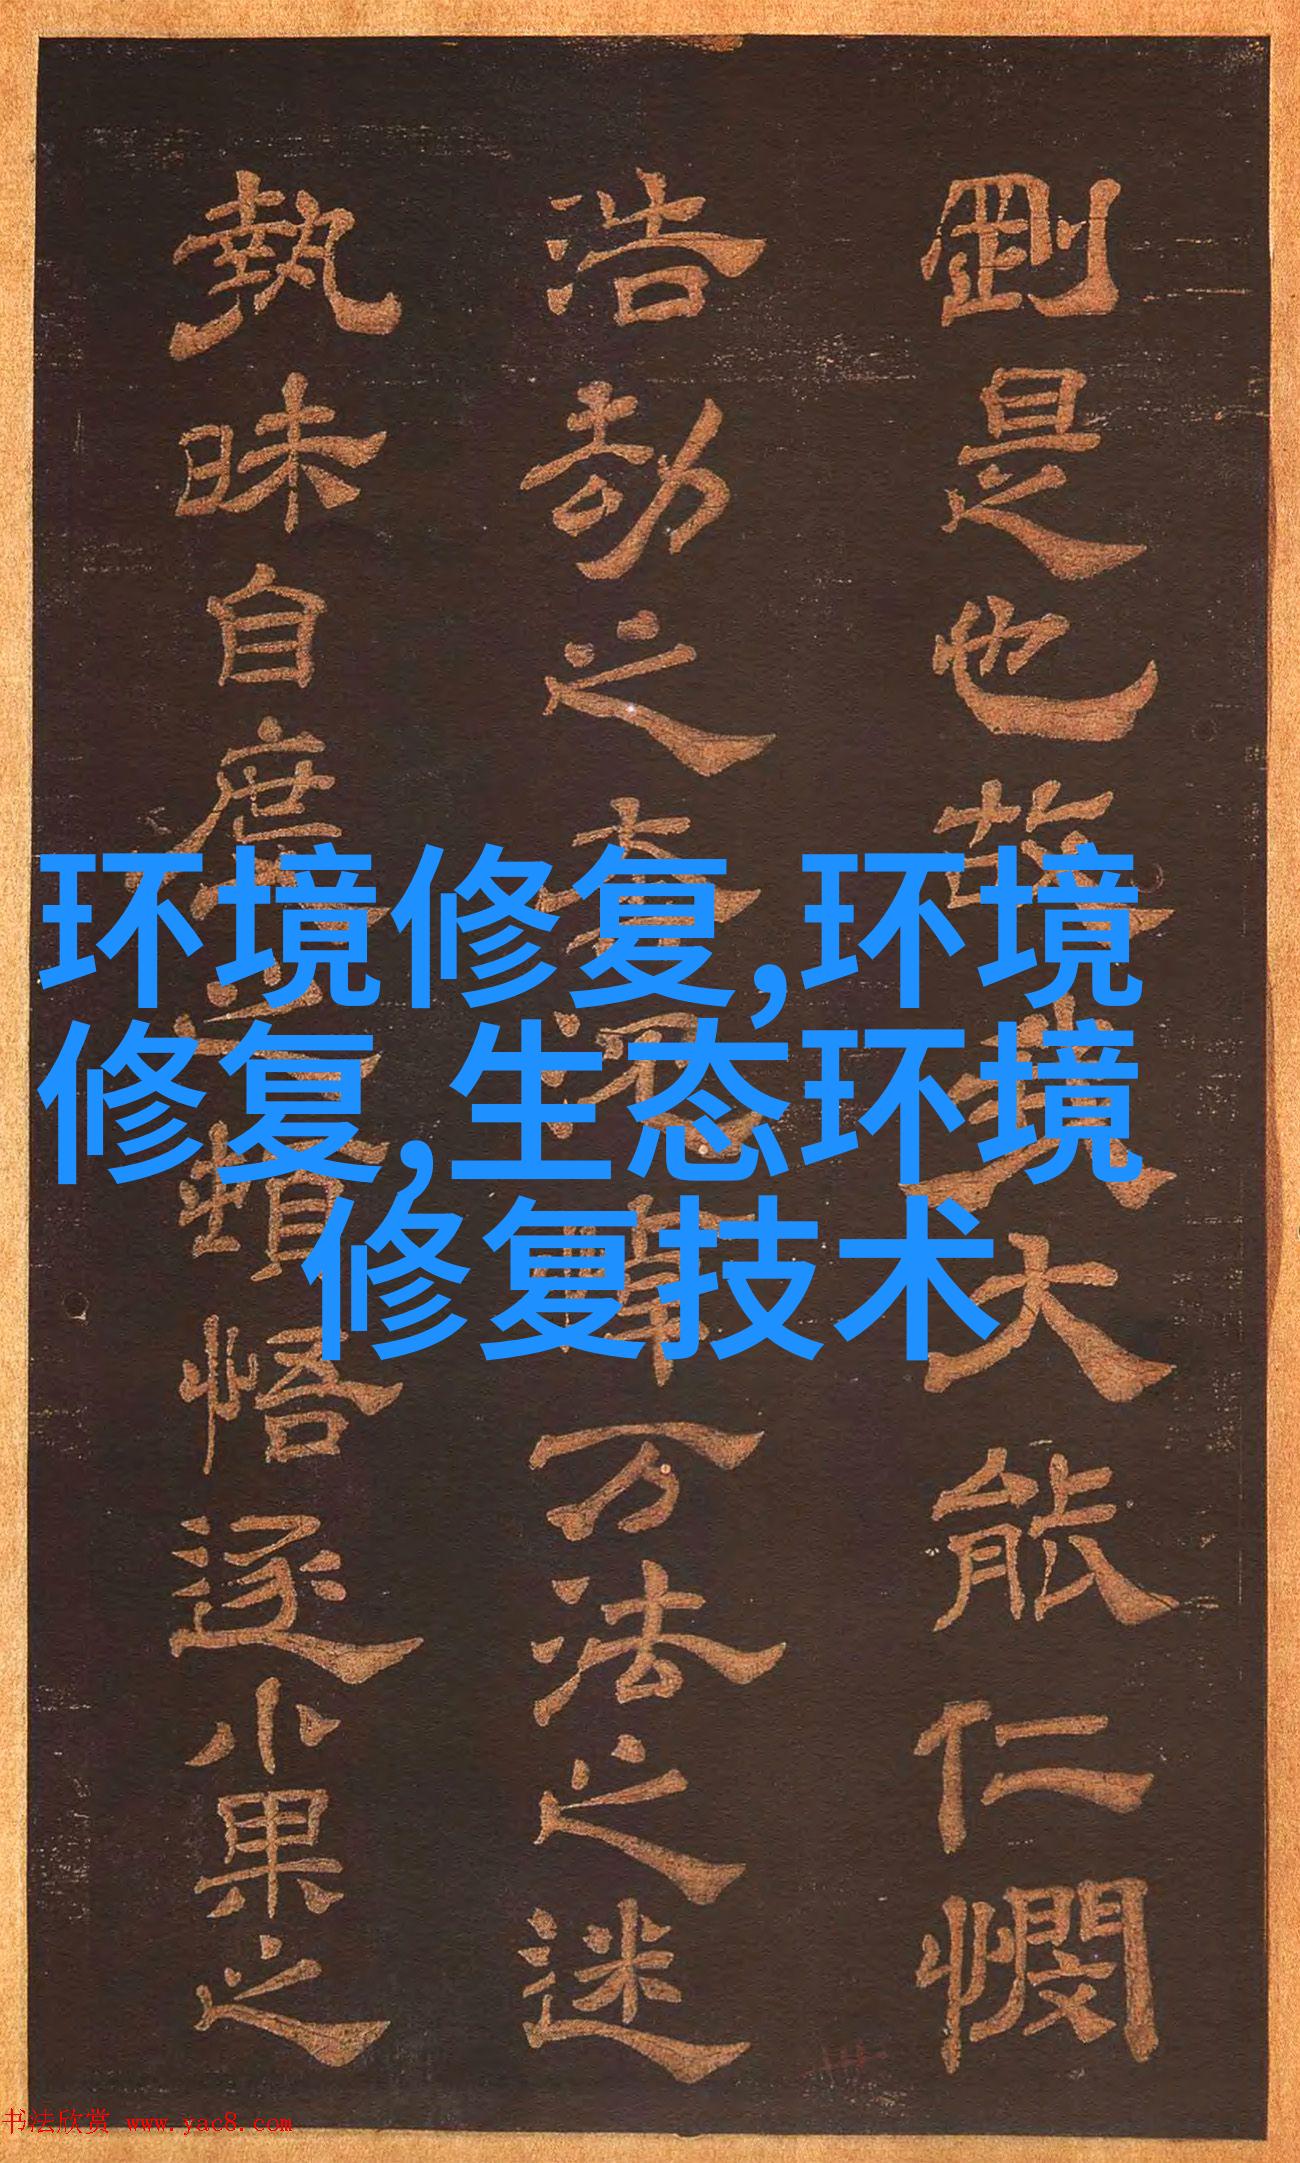 剛是也故
大能仁憫
浩劫之
万法之迷
執昧自庶
頓悟逐小果之
环境修复,环境
修复,生态环境
修复技术
书法欣赏 www.yac8.com